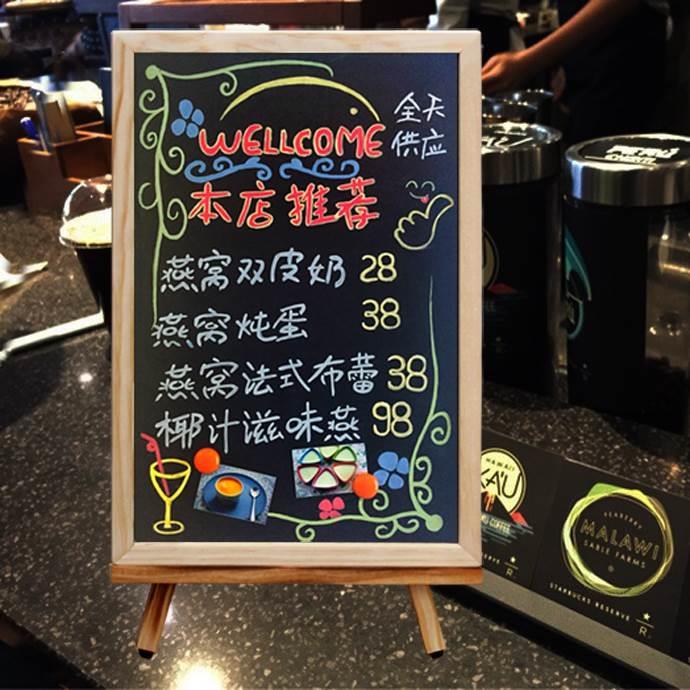 全天
供应
WELLCOME
本店推荐
燕窝双皮奶 28
燕窝炖蛋 38
燕窝法式布蕾 38
椰汁滋味燕 98
HAWAII
KA'U
COFFEE
MALAWI
SABLE FARMS
STARBUCKS RESERVE
R